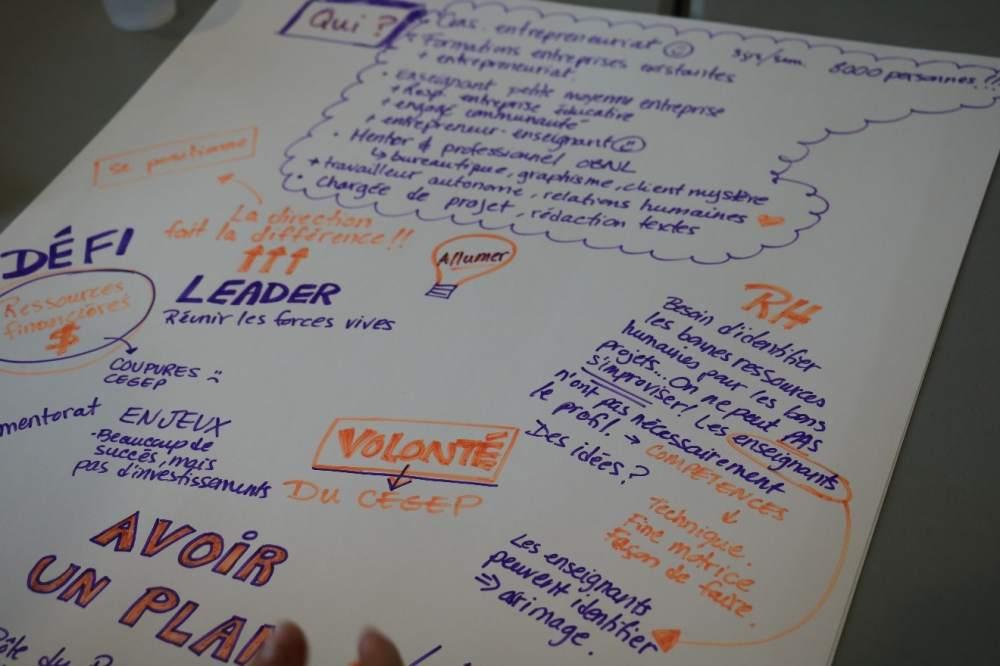 Qui ?
Cons. entrepreneuriat
3 yrs/sem. 8000 personnes...?!!
• Formations entreprises existantes
+ entrepreneuriat
• Enseignant petite moyenne entreprise
+ Resp. entreprise éducative
+ engagé communauté
+ entrepreneur-enseignant
• Mentor & professionnel OBNL
↳ bureautique, graphisme, client mystère
+ travailleur autonome, relations humaines
• Chargée de projet, rédaction textes
se positionne
La direction
fait la différence!!
DÉFI
Ressources
financières
$
COUPURES
CEGEP
LEADER
Réunir les forces vives
Allumer
mentorat
ENJEUX
-Beaucoup de
succès, mais
pas d'investissements
VOLONTÉ
DU CEGEP
AVOIR
UN PLAN
RH
Besoin d'identifier
les bonnes ressources
humaines pour les bons
projets... On ne peut pas
s'improviser! Les enseignants
n'ont pas nécessairement
le profil. → COMPÉTENCES
Des idées?
Technique.
Fine motrice
Façon de faire.
Les enseignants
peuvent identifier
⇒ arrimage.